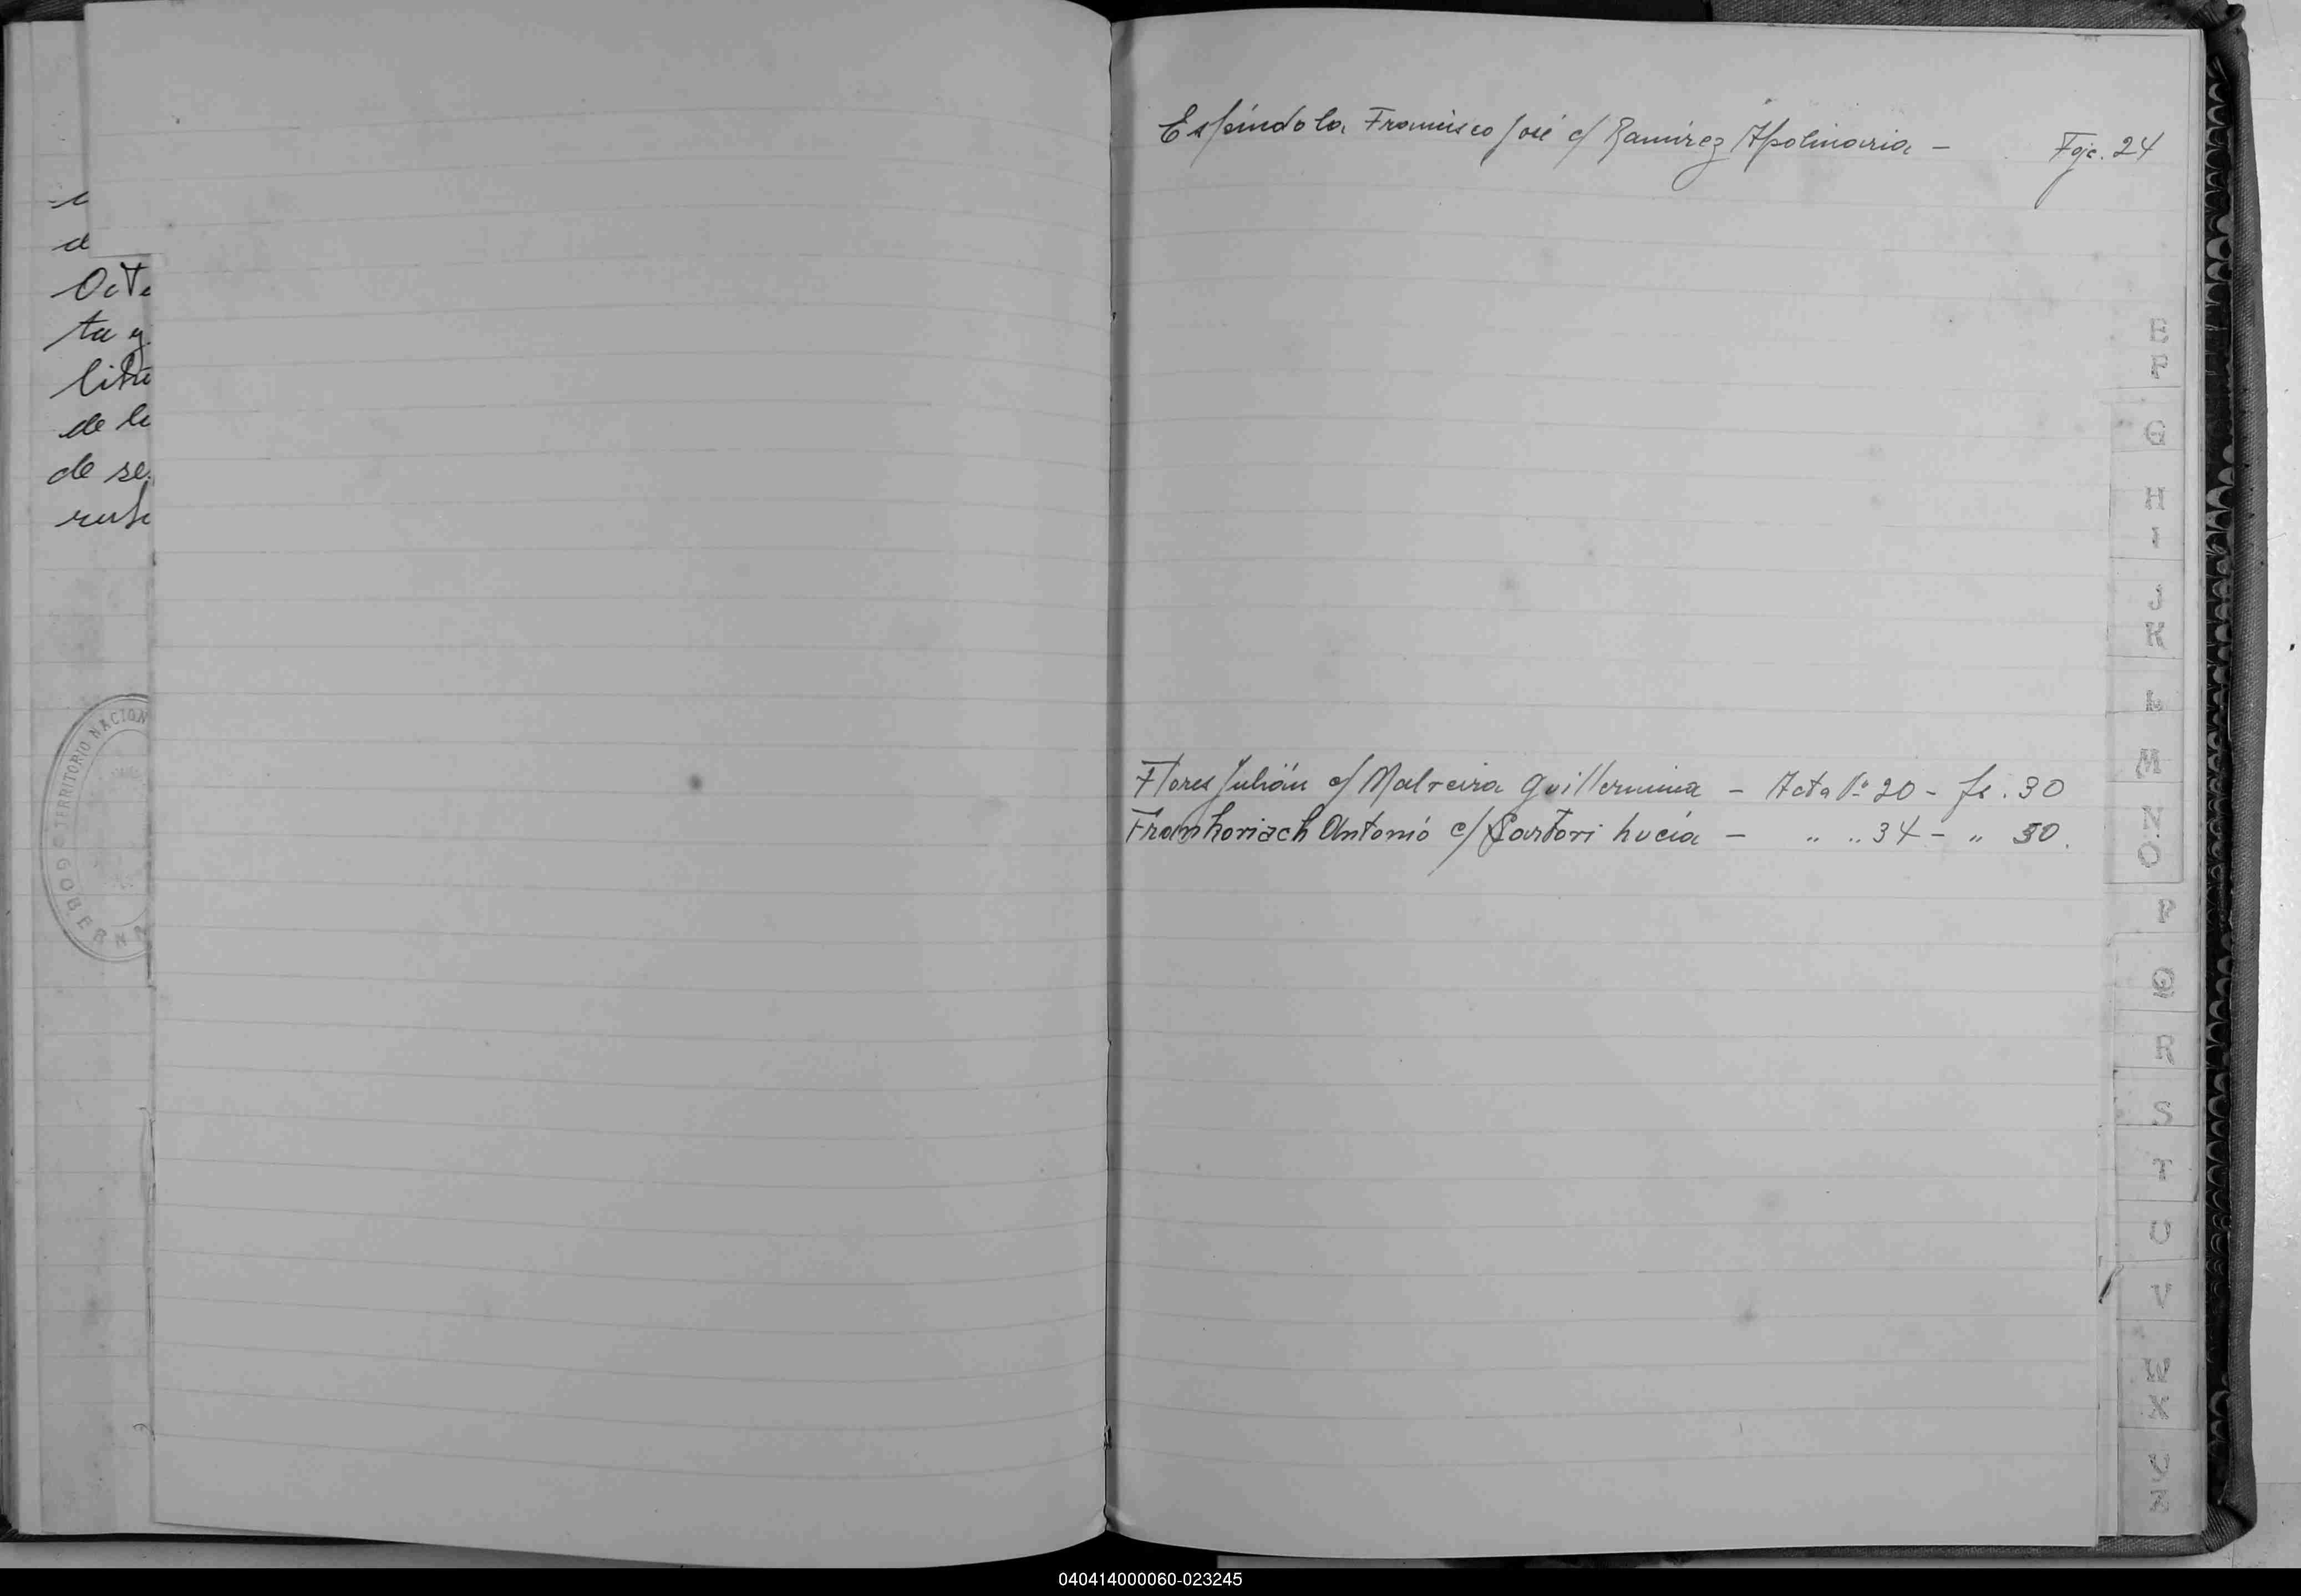 Octe
ta y
de le
de se
TERRITORIO NACION
GOBERN
Espíndola Francisco José c/ Ramírez Apolinaria - Fojc. 24
E
F
G
H
I
J
K
L
M
N.
O
P
Q
R
S
T
U
V
W
X
Flores Julián c/ Malveira Guillermina - Acta Nº 20 - fs. 30
Franhoriach Antonio c/ Sartori Lucía - " " 34 - " 50.
040414000060-023245